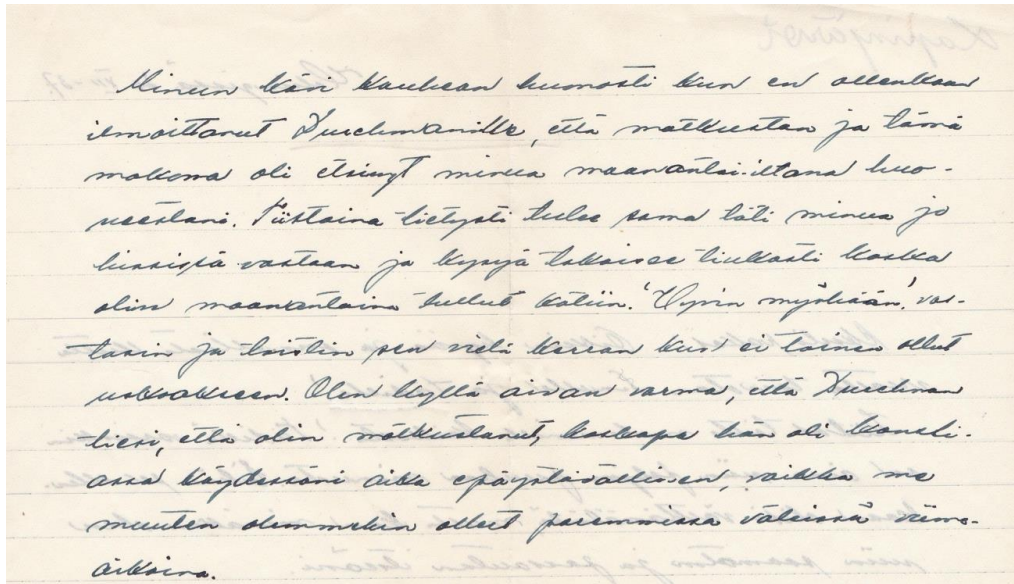 Minun kävi kauhean huonosti kun en ollenkaan
ilmoittanut Duclmanille, että matkustan ja tämä
makoma oli etsinyt minua maanantai-iltana huo-
neestani. Tiistaina tietysti tulee sama täti minua jo
hississä vastaan ja kysyä tokaisee tiukasti koska
olin maanantaina tullut kotiin. 'Hyvin myöhään', vas-
tasin ja toistin sen vielä kerran kun ei toinen ollut
uskoakseen. Olen kyllä aivan varma, että
tiesi, että olin matkustanut, koskapa hän oli kansli-
assa käydessäni aika epäystävällinen, vaikka me
muuten olemmekin olleet paremmissa väleissä viime
aikoina.